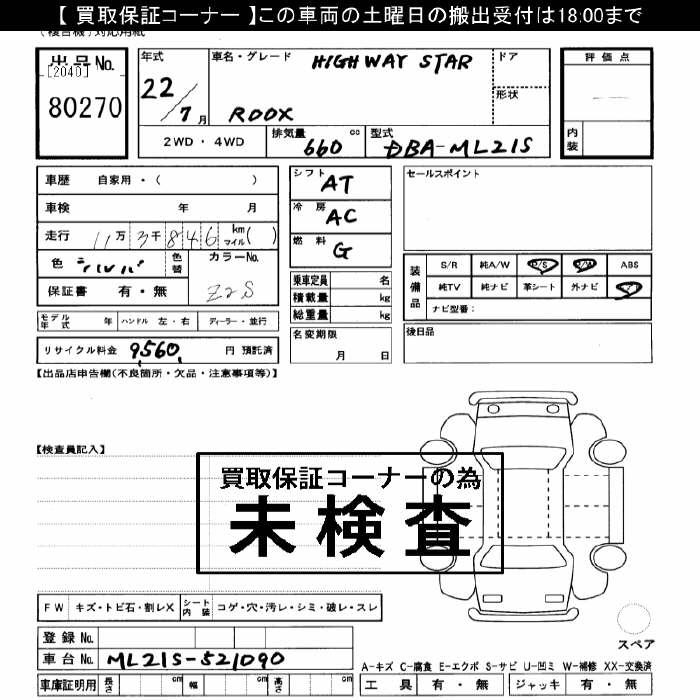 【 買取保証コーナー 】この車両の土曜日の搬出受付は18:00まで
(複合機)対応用紙
出品No.
[2040]
80270
年式
22/7月
車名・グレード
HIGHWAY STAR
ROOX
ドア
形状
評価点
内装
2WD・4WD
排気量
660 cc
型式
DBA-ML21S
車歴 自家用・( )
車検 年 月
走行 11万3千846 km マイル( )
色 シルバ 色替
カラーNo.
Z2S
保証書 有・無
シフト AT
冷房 AC
燃料 G
乗車定員 名
積載量 kg
総重量 kg
セールスポイント
装備品
S/R 純A/W P/S P/W ABS
純TV 純ナビ 革シート 外ナビ
ナビ型番:
モデル年式 年 ハンドル 左・右 ディーラー・並行
リサイクル料金 9,560 円 預託済
名変期限
月 日
後日品
【出品店申告欄(不良箇所・欠品・注意事項等)】
【検査員記入】
買取保証コーナーの為
未検査
FW キズ・トビ石・割レX シート内装 コゲ・穴・汚レ・シミ・破レ・スレ
登録No.
車台No. ML21S-521090
車庫証明用 長さ cm 幅 cm 高さ cm
スペア
A-キズ C-腐食 E-エクボ S-サビ U-凹ミ W-補修 XX-交換済
工具 有・無 ジャッキ 有・無